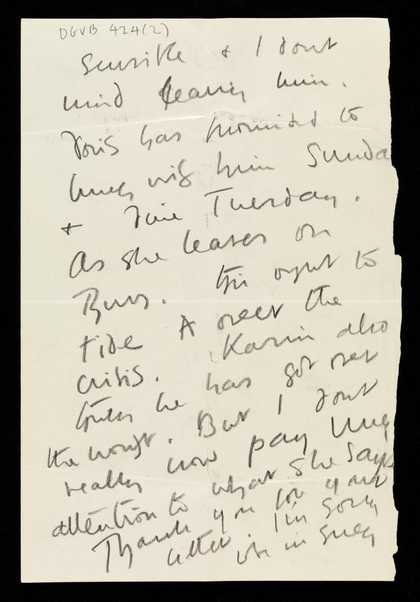 DGVB 424(2)
sensible & I dont
mind leaving him.
Doris has promised to
lunch with him Sunda
& dine Tuesday.
As she leaves on
Thurs. this ought to
tide A over the
crisis. Karin also
thinks he has got over
the worst. But I dont
really now pay much
attention to what she says
Thank you for your
letter. I'm sorry
in such